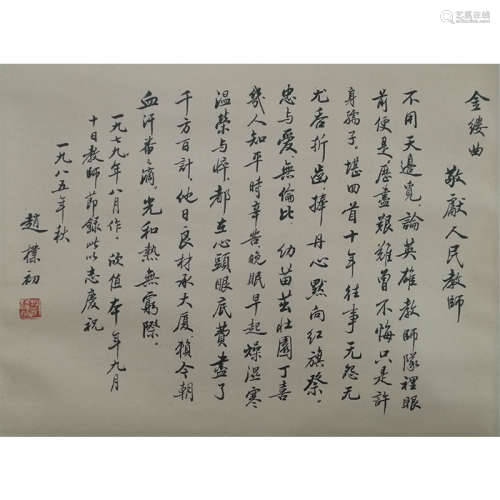 金縷曲
敬獻人民教師
不用天邊覓，論英雄教師隊裡眼
前便是歷盡艱難曾不悔只是許
身孺子，堪回首十年往事无怨无
尤吞折齒，捧丹心默向紅旗祭。
忠与愛無倫比 幼苗茁壯園丁喜
幾人知平時辛苦晚眠早起燥濕寒
温榮与悴都在心頭眼底費盡了
千方百計。他日良材承大廈賴今朝
血汗番番滴。光和熱無窮際。
一九七九年八月作。欣值本年九月
十日教師節錄此以志慶祝
一九八五年秋
趙樸初
艺狐在线